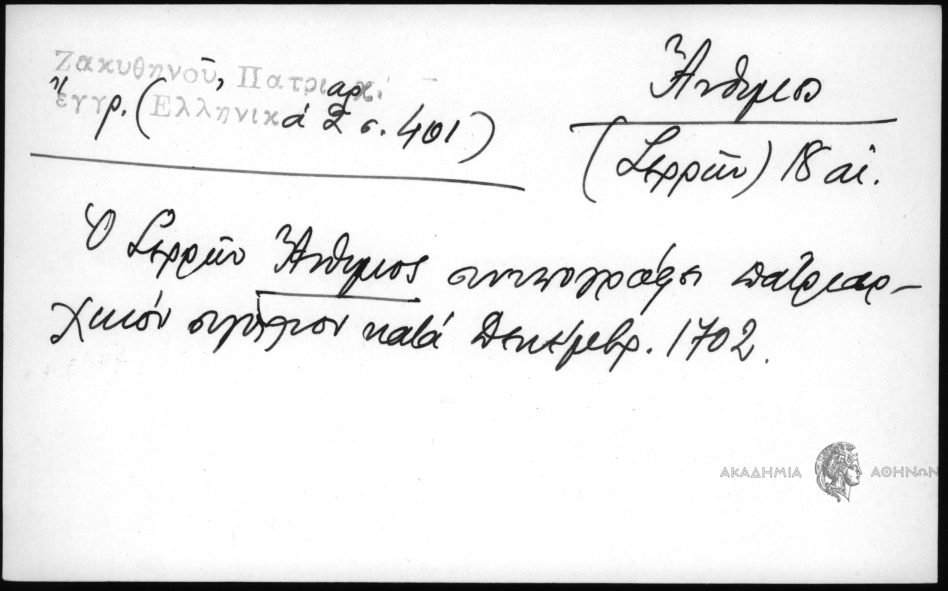 Ζακυθηνοῦ, Πατριαρχ.
ἔγγρ. (Ἑλληνικά 2 σ. 401)
Ἄνθιμος
(Σερρῶν) 18 αἰ.
Ὁ Σερρῶν Ἄνθιμος συνυπογράφει πατριαρ-
χικόν σιγίλλιον κατά Δεκέμβρ. 1702.
ΑΚΑΔΗΜΙΑ ΑΘΗΝΩΝ